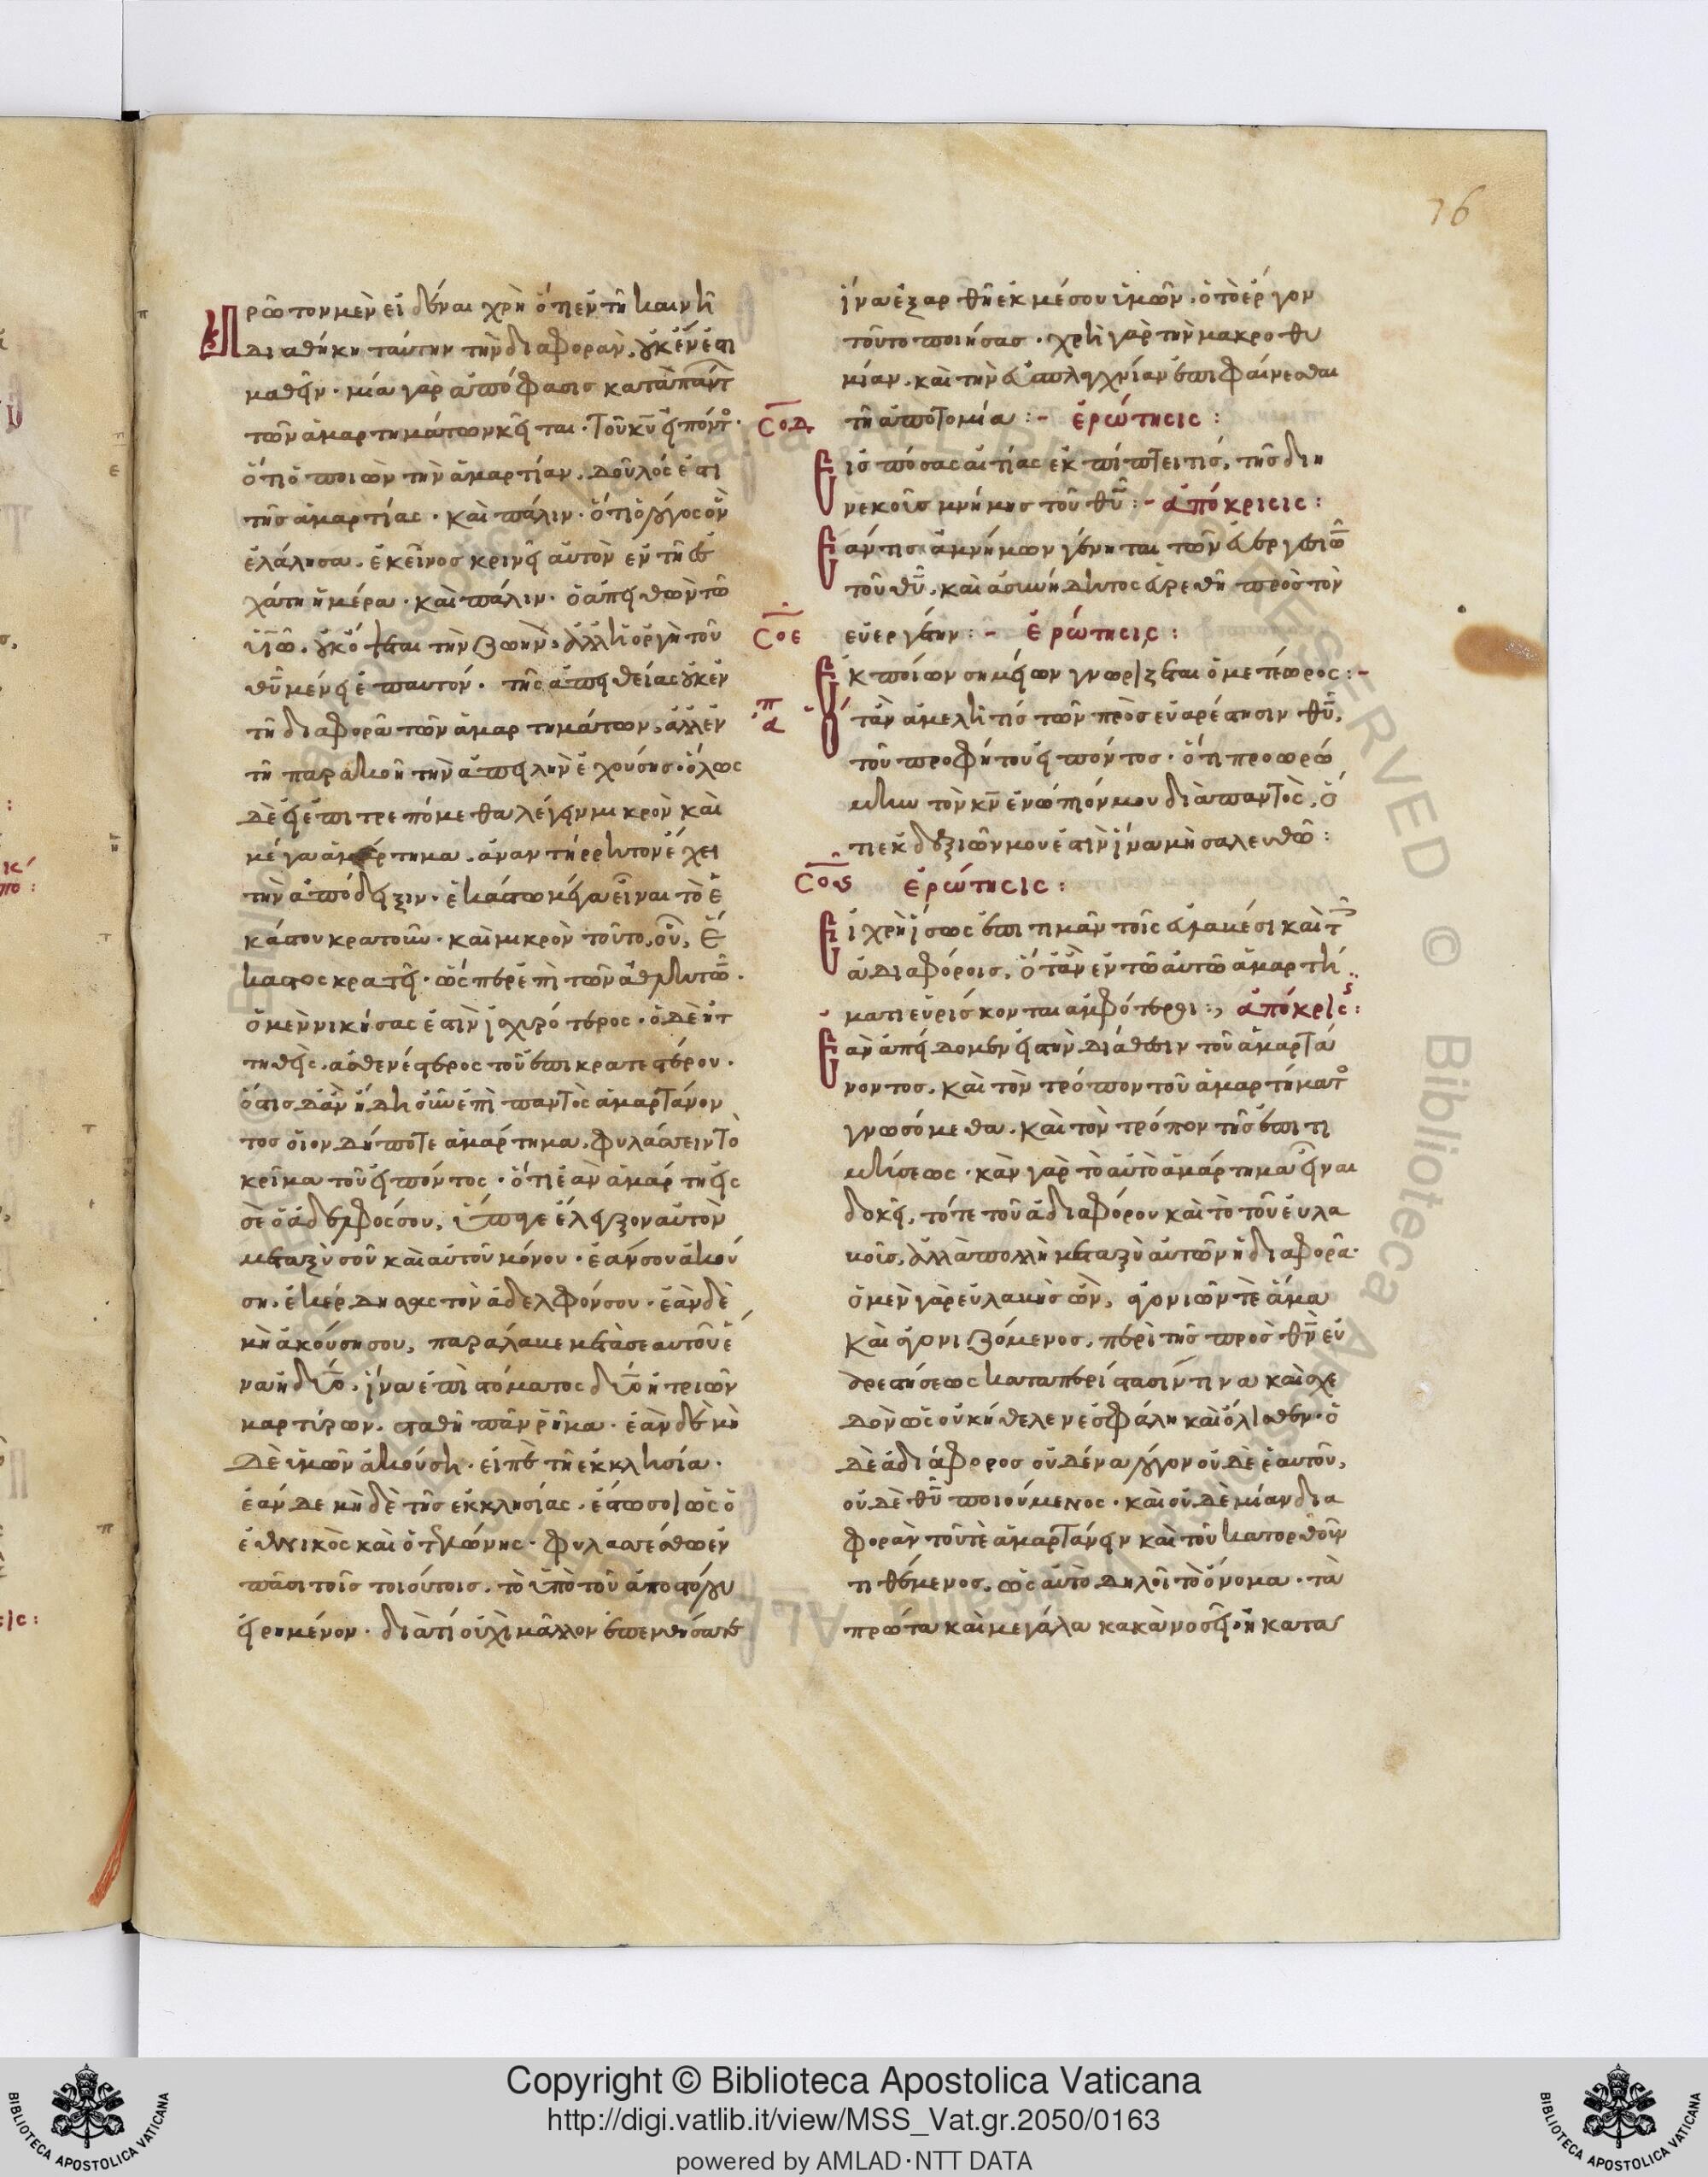 76
Πρῶτον μὲν εἰδέναι χρὴ ὅτι ἐν τῆ καινῆ
διαθήκη ταύτην τὴν διαφορὰν, οὐκ ἔνεστι
μαθεῖν· μία γὰρ ἀπόφασις κατὰ πάντ
τῶν ἁμαρτημάτων κεῖται· τοῦ κυ εἰπόντο·
ὅτι ὁ ποιῶν τὴν ἁμαρτίαν, δοῦλός ἐστι
τῆς ἁμαρτίας· καὶ πάλιν· ὅτι ὁ λόγος ὃν
ἐλάλησα, ἐκεῖνος κρινεῖ αὐτὸν ἐν τῆ ἐσ
χάτη ἡμέρα· καὶ πάλιν· ὁ ἀπειθῶν τῶ
υἱῶ, οὐκ ὄψεται τὴν ζωὴν, ἀλλ ἡ ὀργὴ τοῦ
θυ μένει ἐπ αυτόν· τῆς ἀπειθείας οὐκ ἐν
τῆ διαφορᾶ τῶν ἁμαρτημάτων, ἀλλ ἐν
τῆ παρακοῆ τὴν ἀπειλὴν ἐχούσης· ὅλως
δὲ εἰ ἐπιτρεπόμεθα λέγειν μικρὸν καὶ
μέγα ἁμάρτημα, ἀναντίρρητον ἔχει
τὴν ἀπόδειξιν· ἑκάστω μέγα εἶναι τὸ ἑ
κάστου κρατοῦν· καὶ μικρὸν τοῦτο, οὗ, ἕ
καστος κρατεῖ· ὥσπερ ἐπὶ τῶν ἀθλητῶ·
ὁ μὲν νικήσας ἐστὶν ἰσχυρότερος· ὁ δὲ ἡτ
τηθεὶς, ἀσθενέστερος τοῦ ἐπικρατεστέρου·
ὅστις δ ἂν ἦ δεῖ οὖν ἐπὶ παντὸς ἁμαρτάνον
τος οἷον δήποτε ἁμάρτημα, φυλάσσειν τὸ
κρῖμα τοῦ εἰπόντος· ὅτι ἐὰν ἁμάρτη εἰς
σὲ ὁ ἀδελφός σου, ὕπαγε ἔλεγξον αὐτὸν
μεταξὺ σοῦ καὶ αὐτοῦ μόνου· ἐάν σου ἀκού
ση, ἐκέρδησας τὸν ἀδελφόν σου· ἐὰν δὲ
μὴ ἀκούση σου, παράλαβε μετὰ σεαυτοῦ ἕ
να ἢ δύο, ἵνα ἐπὶ στόματος δύο ἢ τριῶν
μαρτύρων, σταθῆ πᾶν ῥῆμα· ἐὰν δὲ μη
δὲ ὑμῶν ἀκούση· εἰπὲ τῆ ἐκκλησία·
ἐάν δε μηδὲ τῆς ἐκκλησίας, ἔστω σοι ὡς ὁ
ἐθνικὸς καὶ ὁ τελώνης· φυλασσέσθω ἐν
πᾶσι τοῖς τοιούτοις, τὸ ὑπὸ τοῦ ἀποστόλου
εἰρημένον· διὰ τί οὐχὶ μᾶλλον ἐπενθήσατε
ἵνα ἐξαρθῆ ἐκ μέσου ὑμῶν, ὁ τὸ ἔργον
τοῦτο ποιήσας· χρὴ γὰρ τὴν μακροθυ
μίαν, καὶ τὴν εὐσπλαγχνίαν ἐπιφαίνεσθαι
σοδ τῆ ἀποτομία :- ἐρώτησις :
Εἰς πόσας αἰτίας ἐκπίπτει τίς, τῆς διη
νεκοῦς μνήμης τοῦ θυ :- ἀπόκρισις :
Ἐάν τις ἀμνήμων γένηται τῶν εὐεργεσιῶ
τοῦ θυ, καὶ ἀσυνείδητος εὑρεθῆ πρὸς τὸν
σοε εὐεργέτην :- ἐρώτησις :
Ἐκ ποίων σημείων γνωρίζεται ὁ μετέωρος :-
απ Ὅταν ἀμελῆ τίς τῶν πρὸς εὐαρέστησιν θυ,
τοῦ προφήτου εἰπόντος· ὅτι προωρώ
μην τὸν κν ἐνώπιόν μου διὰ παντὸς, ὅ
τι ἐκ δεξιῶν μου ἐστὶν ἵνα μὴ σαλευθῶ :
σος ἐρώτησις :
Εἰ χρὴ ἴσως ἐπιτιμᾶν τοῖς εὐλαβέσι καὶ τ
ἀδιαφόροις, ὅταν ἐν τῶ αὐτῶ ἁμαρτή
ματι εὑρίσκονται ἀμφότεροι :, ἀπόκρισις :
Ἐὰν ἀπείδομεν εἰς τὴν διάθεσιν τοῦ ἁμαρτά
νοντος, καὶ τὸν τρόπον τοῦ ἁμαρτήματο
γνωσόμεθα, καὶ τὸν τρόπον τῆς ἐπιτι
μήσεως· κἂν γὰρ τὸ αὐτὸ ἁμάρτημα εἶναι
δοκεῖ, τό τε τοῦ ἀδιαφόρου καὶ τὸ τοῦ εὐλα
βοῦς, ἀλλὰ πολλὴ μεταξὺ αὐτῶν ἡ διαφορᾶ·
ὁ μὲν γὰρ εὐλαβὴς ὢν, ἀγωνιῶν τὲ ἅμα
καὶ ἀγωνιζόμενος, περὶ τῆς πρὸς θν εὐα
ρεστήσεως κατα περίστασίν τινα καὶ σχε
δὸν ὡς οὐκ ἤθελεν ἐσφάλη καὶ ὀλίσθεν· ὁ
δὲ ἀδιάφορος οὐδένα λόγον οὐδὲ ἑαυτοῦ,
οὐδὲ θυ ποιούμενος· καὶ οὐδὲ μίαν δια
φορὰν τοῦ τὲ ἁμαρτάνειν καὶ τοῦ κατορθοῦν
τιθέμενος, ὡς αὐτὸ δηλοῖ τὸ ὄνομα· τὰ
πρῶτα καὶ μεγάλα κακὰ νοσεῖ, ἢ κατα
Copyright © Biblioteca Apostolica Vaticana
http://digi.vatlib.it/view/MSS_Vat.gr.2050/0163
powered by AMLAD·NTT DATA
BIBLIOTECA APOSTOLICA VATICANA
BIBLIOTECA APOSTOLICA VATICANA